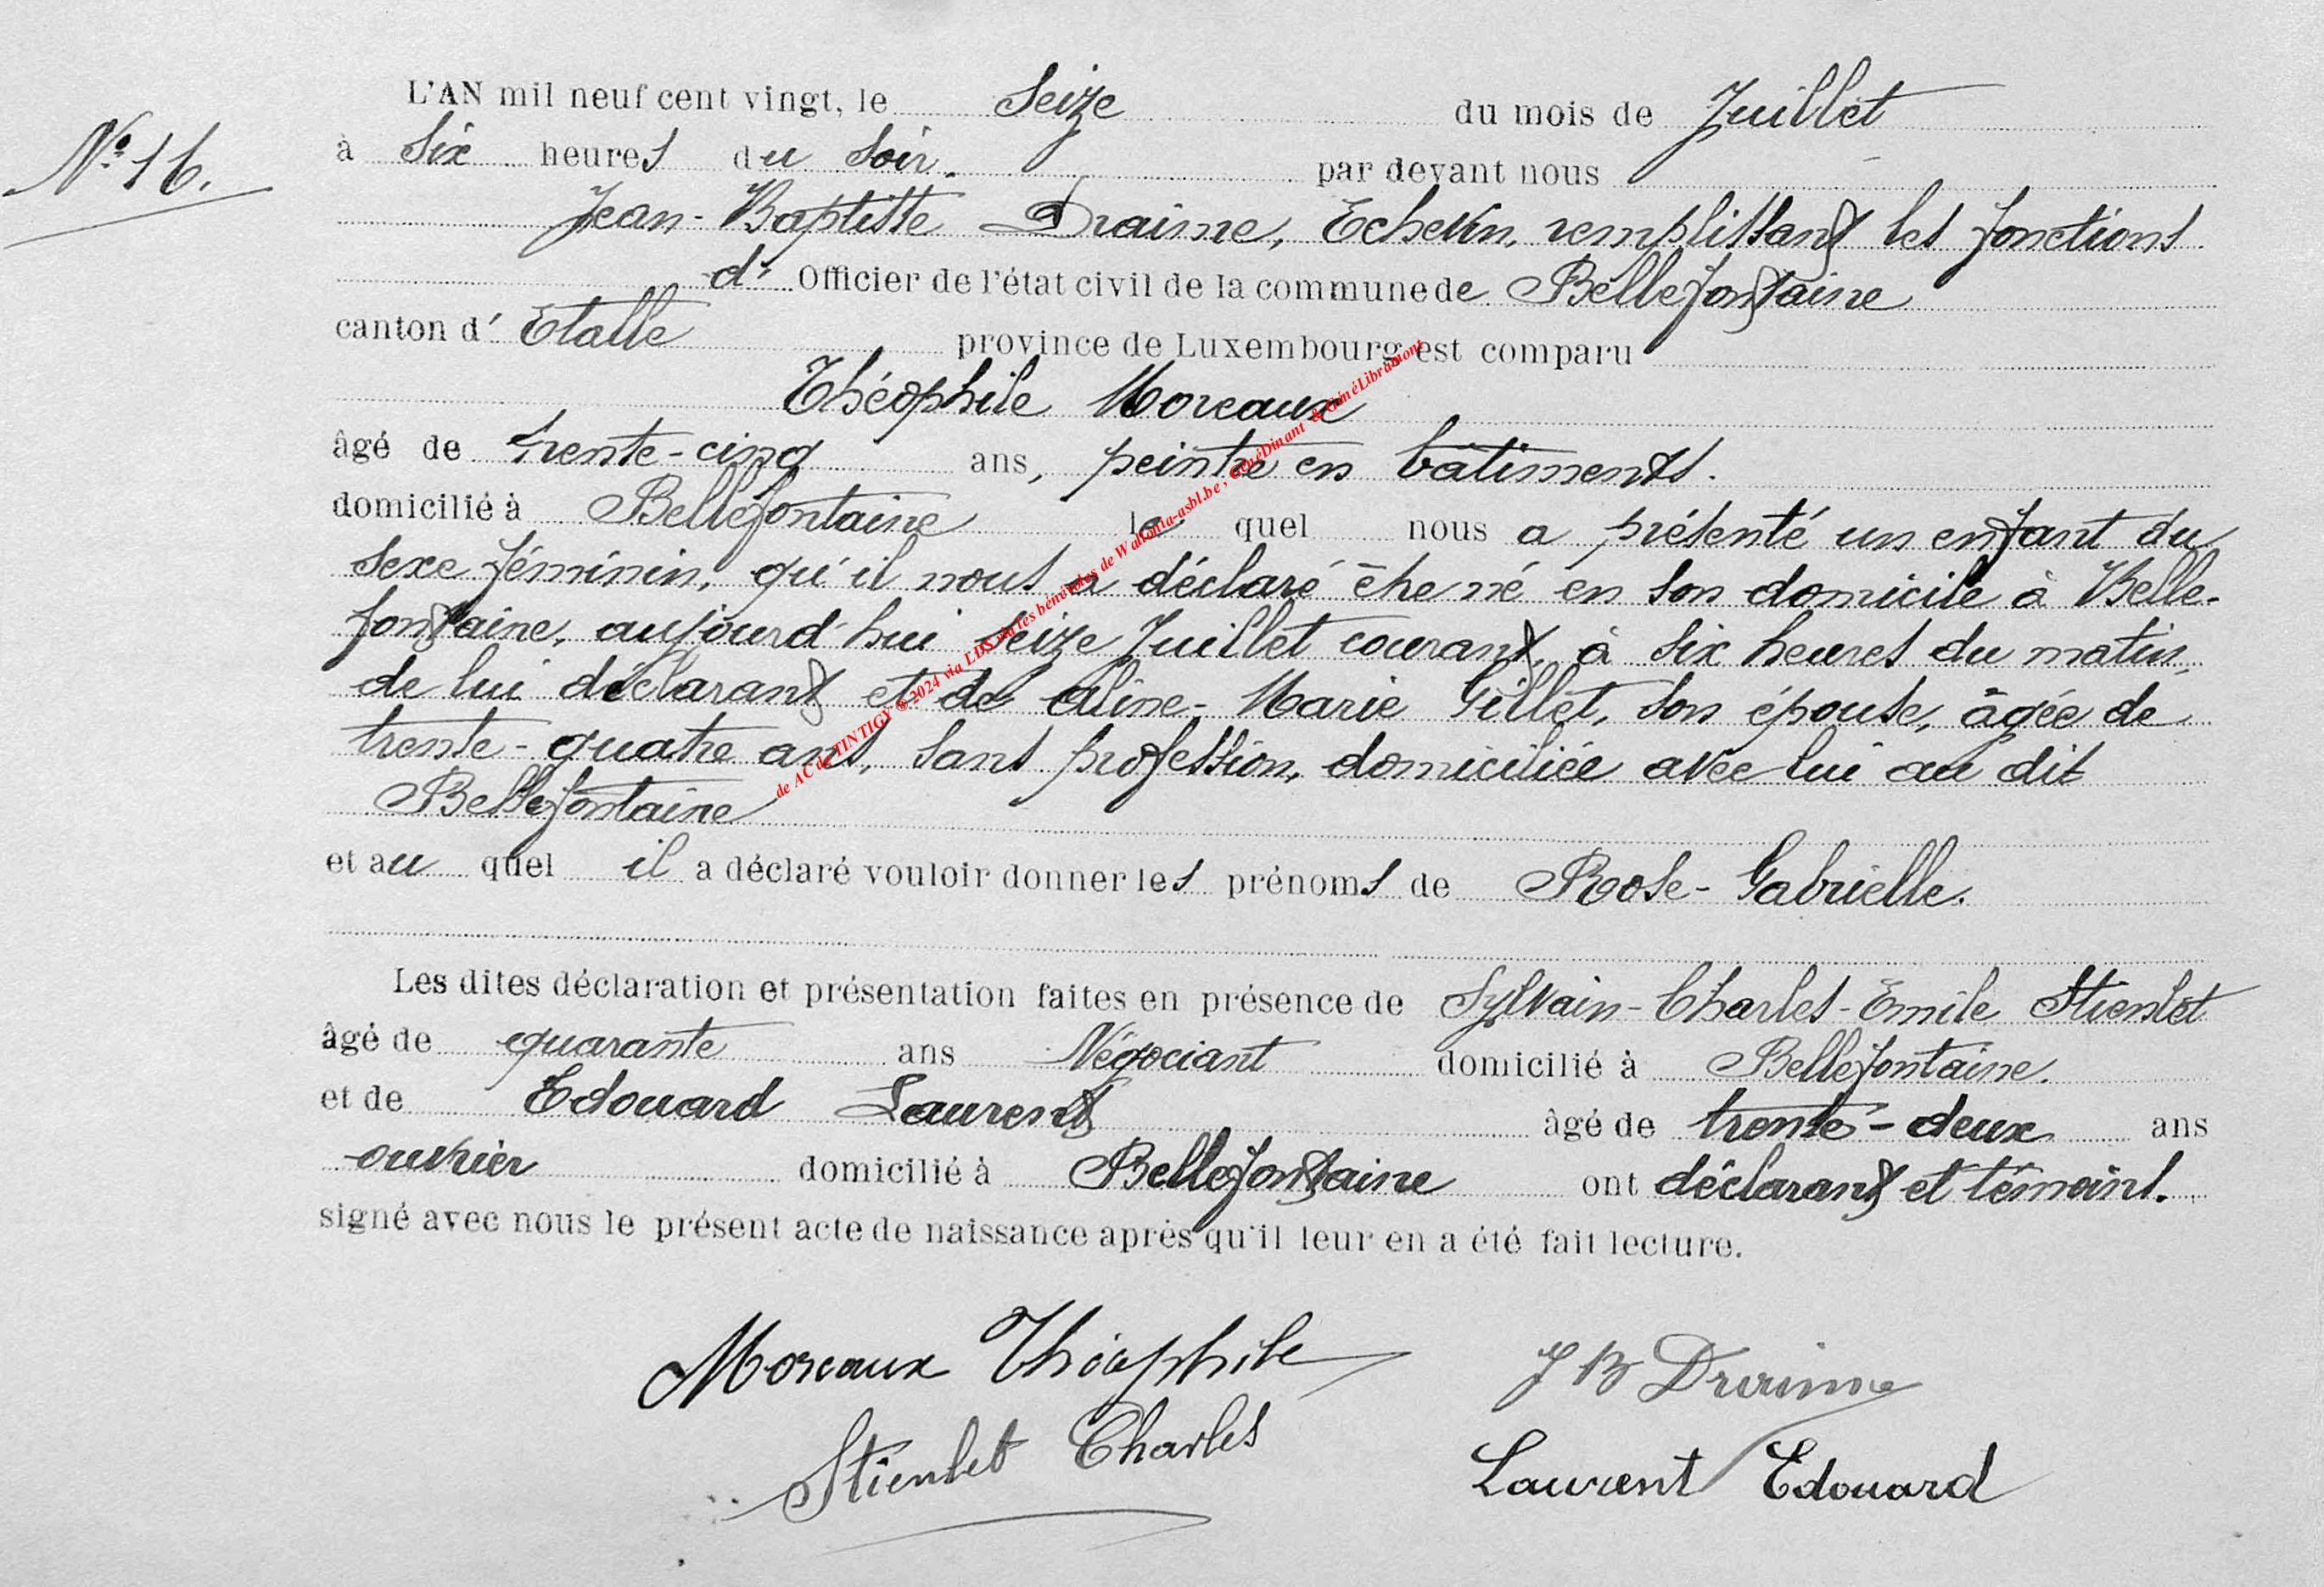 N° 16.
L'AN mil neuf cent vingt, le Seize du mois de Juillet
à Six heures du Soir. par devant nous
Jean-Baptiste Draime, Echevin, remplissant les fonctions
d' Officier de l'état civil de la commune de Bellefontaine
canton d' Etalle province de Luxembourg est comparu
Théophile Moreaux
âgé de trente-cinq ans, peintre en bâtiments.
domicilié à Bellefontaine le quel nous a présenté un enfant du
sexe féminin, qu'il nous a déclaré être né en son domicile à Belle-
fontaine, aujourd'hui seize Juillet courant, à six heures du matin,
de lui déclarant et de Aline-Marie Gillet, son épouse, âgée de
trente-quatre ans, sans profession, domiciliée avec lui au dit
Bellefontaine
et au quel il a déclaré vouloir donner les prénoms de Rose-Gabrielle.
Les dites déclaration et présentation faites en présence de Sylvain-Charles-Emile Stienlet
âgé de quarante ans Négociant domicilié à Bellefontaine.
et de Edouard Laurent âgé de trente-deux ans
ouvrier domicilié à Bellefontaine ont déclarant et témoins.
signé avec nous le présent acte de naissance après qu'il leur en a été fait lecture.
Moreaux Théophile
J B Draime
Stienlet Charles
Laurent Edouard
de AC de TINTIGY © 2024 via LDS via les bénévoles de Wallonia-asbl.be , GénéDinant & GénéLibramont